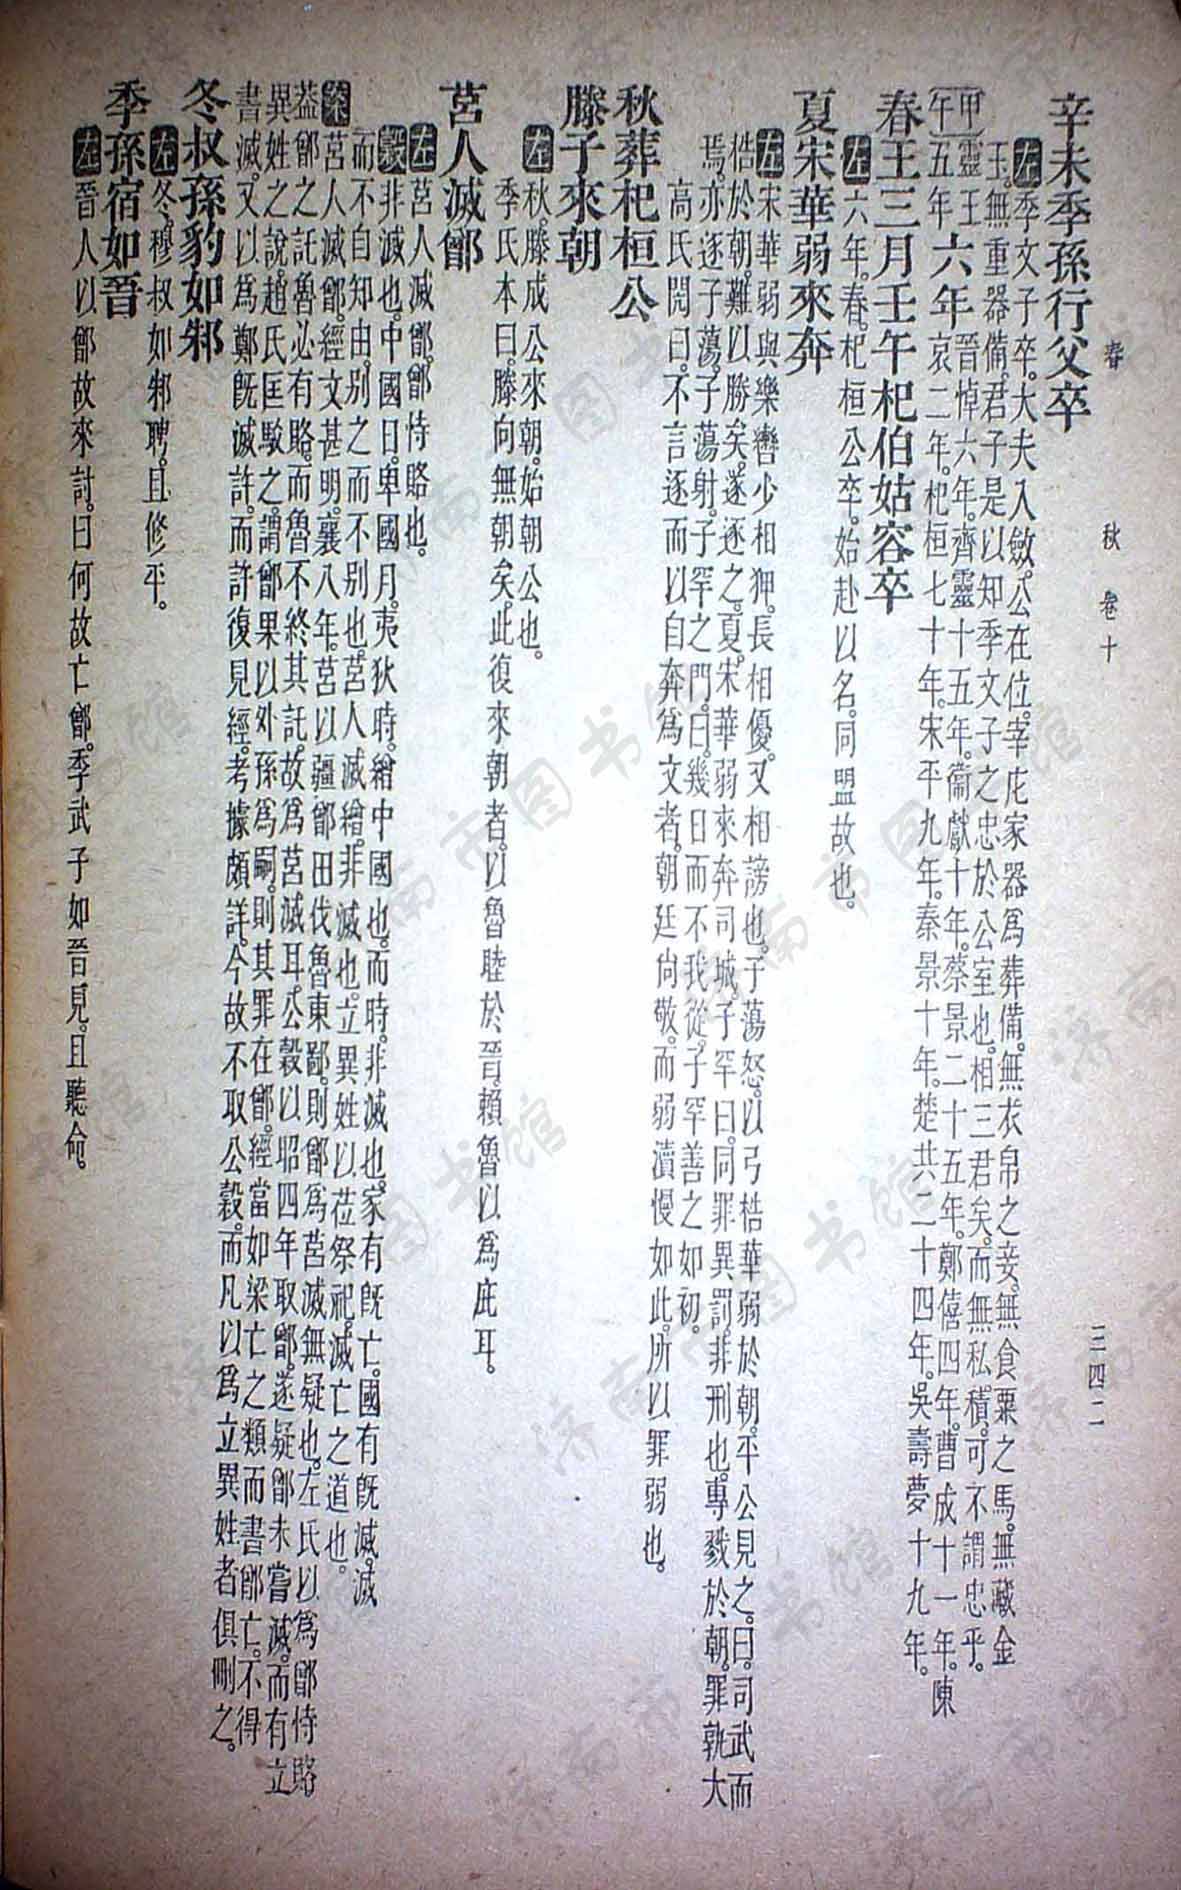 春　秋　卷十　三四二
辛未季孫行父卒
左季文子卒。大夫入斂。公在位。宰庀家器爲葬備。無衣帛之妾。無食粟之馬。無藏金
玉。無重器備。君子是以知季文子之忠於公室也。相三君矣。而無私積。可不謂忠乎。
甲午靈王五年六年晉悼六年。齊靈十五年。衞獻十年。蔡景二十五年。鄭僖四年。曹成十一年。陳
哀二年。杞桓七十年。宋平九年。秦景十年。楚共二十四年。吳壽夢十九年。
春王三月壬午杞伯姑容卒
左六年。春。杞桓公卒。始赴以名。同盟故也。
夏宋華弱來奔
左宋華弱與樂轡少相狎。長相優。又相謗也。子蕩怒。以弓梏華弱於朝。平公見之。曰。司武而
梏於朝。難以勝矣。遂逐之。夏。宋華弱來奔。司城子罕曰。同罪異罰。非刑也。專戮於朝。罪孰大
焉。亦逐子蕩。子蕩射子罕之門。曰。幾日而不我從。子罕善之如初。
高氏閌曰。不言逐而以自奔爲文者。朝廷尙敬。而弱瀆慢如此。所以罪弱也。
秋葬杞桓公
滕子來朝
左秋。滕成公來朝。始朝公也。
季氏本曰。滕向無朝矣。此復來朝者。以魯睦於晉。賴魯以爲庇耳。
莒人滅鄫
左莒人滅鄫。鄫恃賂也。
穀非滅也。中國日。卑國月。夷狄時。繒中國也。而時。非滅也。家有旣亡。國有旣滅。滅
而不自知由。別之而不別也。莒人滅繒。非滅也。立異姓以莅祭祀。滅亡之道也。
案莒人滅鄫。經文甚明。襄八年。莒以疆鄫田伐魯東鄙。則鄫爲莒滅無疑也。左氏以爲鄫恃賂
葢鄫之託魯必有賂。而魯不終其託。故爲莒滅耳。公穀以昭四年取鄫。遂疑鄫未嘗滅。而有立
異姓之說。趙氏匡駁之。謂鄫果以外孫爲嗣。則其罪在鄫。經當如梁亡之類而書鄫亡。不得
書滅。又以爲鄭旣滅許。而許復見經。考據頗詳。今故不取公穀。而凡以爲立異姓者俱刪之。
冬叔孫豹如邾
左冬。穆叔如邾聘。且修平。
季孫宿如晉
左晉人以鄫故來討。曰。何故亡鄫。季武子如晉見。且聽命。